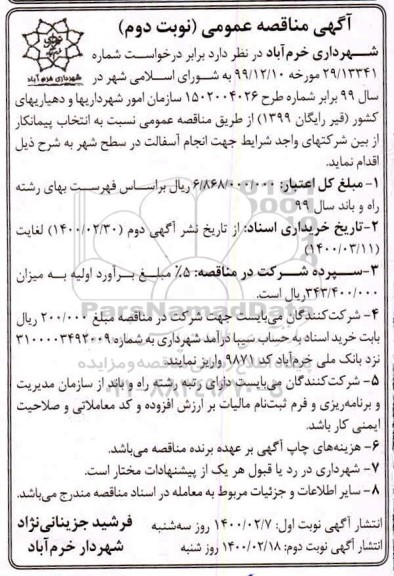 آگهی مناقصه عمومی (نوبت دوم)
شهرداری خرم آباد
شهرداری خرم‌آباد در نظر دارد برابر درخواست شماره
۲۹/۱۳۳۴۱ مورخه ۹۹/۱۲/۱۰ به شورای اسلامی شهر در
سال ۹۹ برابر شماره طرح ۱۵۰۲۰۰۴۰۲۶ سازمان امور شهرداریها و دهیاریهای
کشور (قیر رایگان ۱۳۹۹) از طریق مناقصه عمومی نسبت به انتخاب پیمانکار
از بین شرکتهای واجد شرایط جهت انجام آسفالت در سطح شهر به شرح ذیل
اقدام نماید.
۱- مبلغ کل اعتبار: ۶/۸۶۸/۰۰۰/۰۰۰ ریال براساس فهرست بهای رشته
راه و باند سال ۹۹
۲-تاریخ خریداری اسناد: از تاریخ نشر آگهی دوم (۱۴۰۰/۰۲/۳۰) لغایت
(۱۴۰۰/۰۳/۱۱)
۳-سپرده شرکت در مناقصه: ۵٪ مبلغ برآورد اولیه به میزان
۳۴۳/۴۰۰/۰۰۰ریال است.
۴- شرکت‌کنندگان می‌بایست جهت شرکت در مناقصه مبلغ ۲۰۰/۰۰۰ ریال
بابت خرید اسناد به حساب سیبا درآمد شهرداری به شماره ۳۱۰۰۰۰۳۴۹۲۰۰۹
نزد بانک ملی خرم‌آباد کد ۹۸۷۱ واریز نمایند.
۵- شرکت‌کنندگان می‌بایست دارای رتبه رشته راه و باند از سازمان مدیریت
و برنامه‌ریزی و فرم ثبت‌نام مالیات بر ارزش افزوده و کد معاملاتی و صلاحیت
ایمنی کار باشد.
۶- هزینه‌های چاپ آگهی بر عهده برنده مناقصه می‌باشد.
۷- شهرداری در رد یا قبول هر یک از پیشنهادات مختار است.
۸- سایر اطلاعات و جزئیات مربوط به معامله در اسناد مناقصه مندرج می‌باشد.
انتشار آگهی نوبت اول: ۱۴۰۰/۰۲/۷ روز سه‌شنبه
انتشار آگهی نوبت دوم: ۱۴۰۰/۰۲/۱۸ روز شنبه
فرشید جزینانی‌نژاد
شهردار خرم‌آباد
ParsNamadData